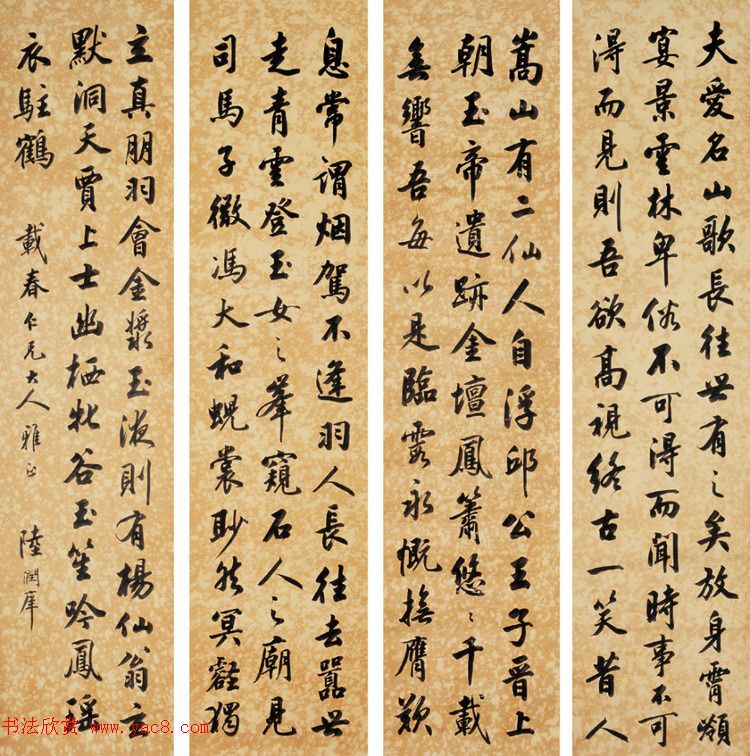 夫愛名山歌長往世有之矣放身霄嶺
宴景雲林卑俗不可得而聞時事不可
得而見則吾欲高視終古一笑昔人
嵩山有二仙人自浮邱公王子晉上
朝玉帝遺跡金壇鳳簫悠〻千載
無響吾每以是臨霞永慨撫膺歎
息常謂烟駕不逢羽人長往去囂世
走青雲登玉女之峯窺石人之廟見
司馬子微馮大和蜺裳眇然冥壑獨
立真朋羽會金漿玉液則有楊仙翁玄
默洞天賈上士幽栖牝谷玉笙吟鳳瑶
衣駐鶴 載春仁兄大人雅正 陸潤庠
书法欣赏 www.yac8.com